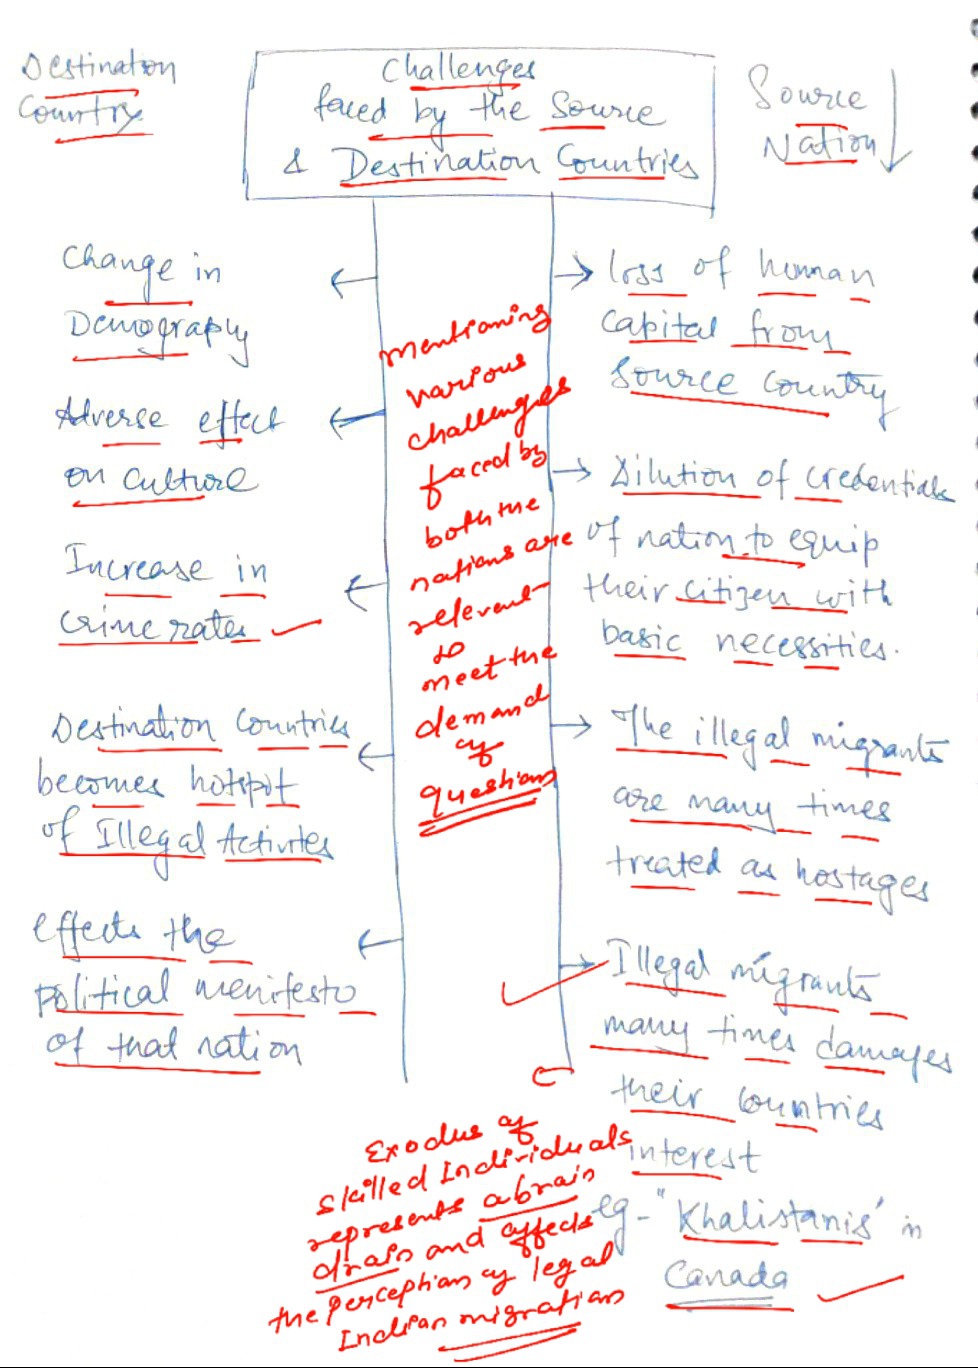 Destination
Country
Challenges
faced by the Source
& Destination Countries
Source
Nation
Change in
Demography
Adverse effect
on Culture
Increase in
Crime rates
Destination Countries
becomes hotspot
of Illegal Activites
effects the
political menifesto
of that nation
mentioning
various
challenges
faced by
both the
nations are
relevent
to
meet the
demand
of
questions
loss of human
Capital from
Source Country
Dilution of credentials
of nation to equip
their citizen with
basic necessities.
The illegal migrants
are many times
treated as hostages
Illegal migrants
many times damages
their countries
interest
eg- "Khalistanis" in
Canada
Exodus of
skilled Individuals
represents a brain
drain and affects
the perception of legal
Indian migration